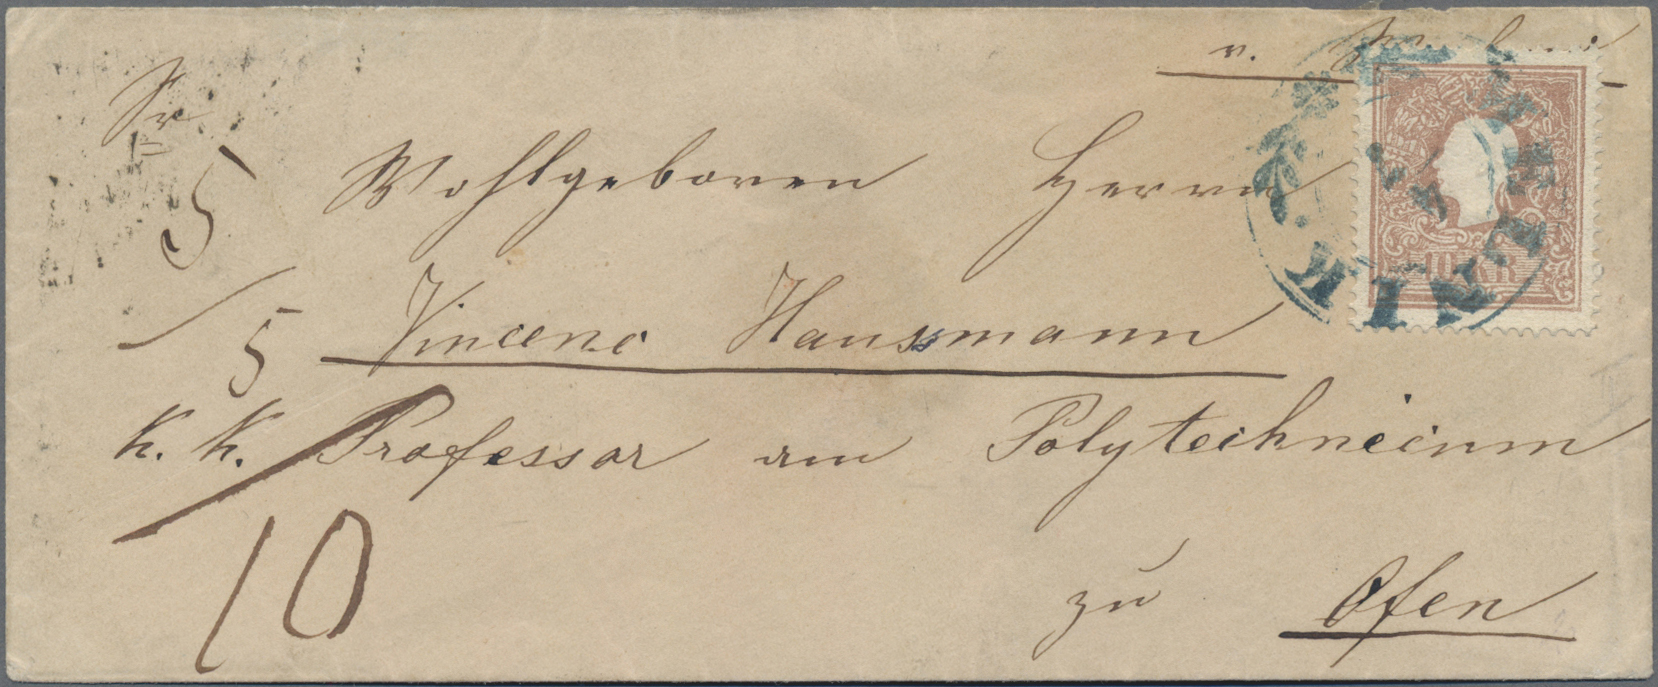 v.
Sr
5
Wohlgeboren Herrn
5
Vincenc Hausmann
K. K. Professor am Polytechnicum
10
zu Ofen
10 KR